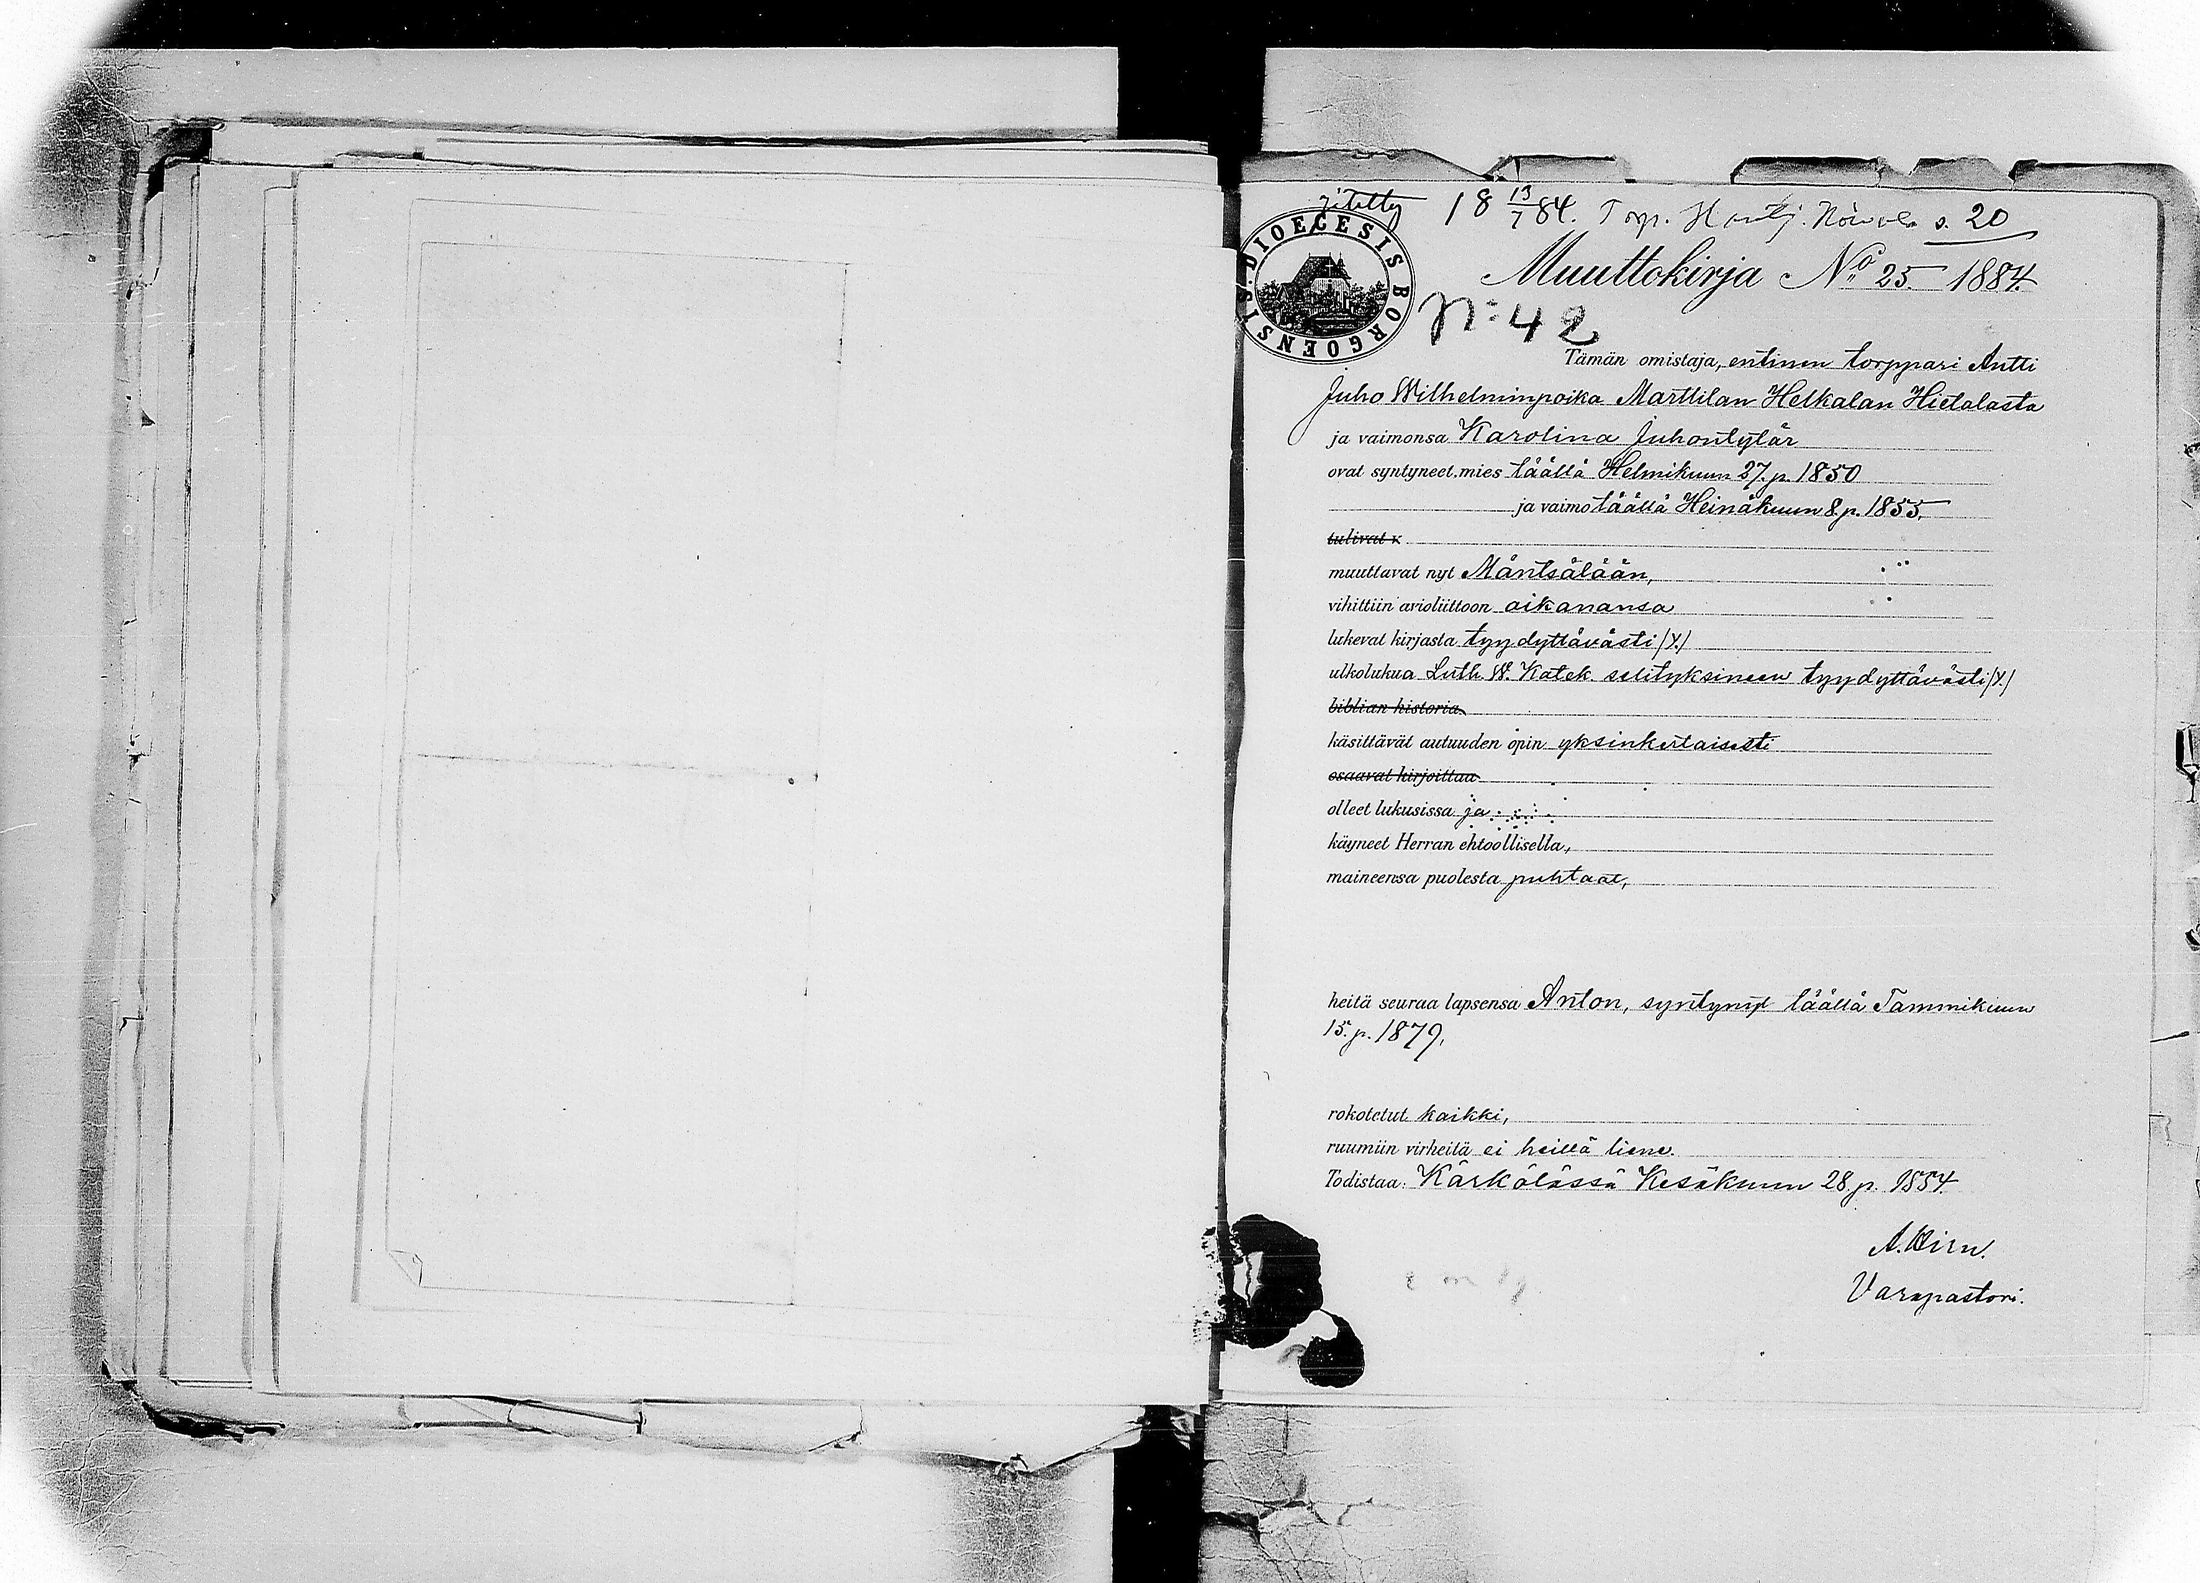 jätetty 18 13/7 84. Torp. s. 20
DIOECESIS BORGOENSIS.
Muuttokirja No 25 1884.
N:42
Tämän omistaja, entinen torppari Antti
Juho Wilhelminpoika Marttilan Helkalan Hietalasta
ja vaimonsa Karolina Juhontytär
ovat syntyneet. mies täällä Helmikuun 27. p. 1850
ja vaimo täällä Heinäkuun 8. p. 1855.
tulivat
muuttavat nyt Mäntsälään,
vihittiin avioliittoon aikanansa
lukevat kirjasta tyydyttävästi /y./
ulkolukua Luth. W. Katek. selityksineen tyydyttävästi /y./
biblian historia
käsittävät autuuden opin yksinkertaisesti
osaavat kirjoittaa
olleet lukusissa ja
käyneet Herran ehtoollisella,
maineensa puolesta puhtaat,
heitä seuraa lapsensa Anton, syntynyt täällä Tammikuun
15. p. 1879,
rokotetut kaikki,
ruumiin virheitä ei heillä liene.
Todistaa: Kärkölässä Kesäkuun 28 p. 1884.
A. Hirn.
Varapastori.